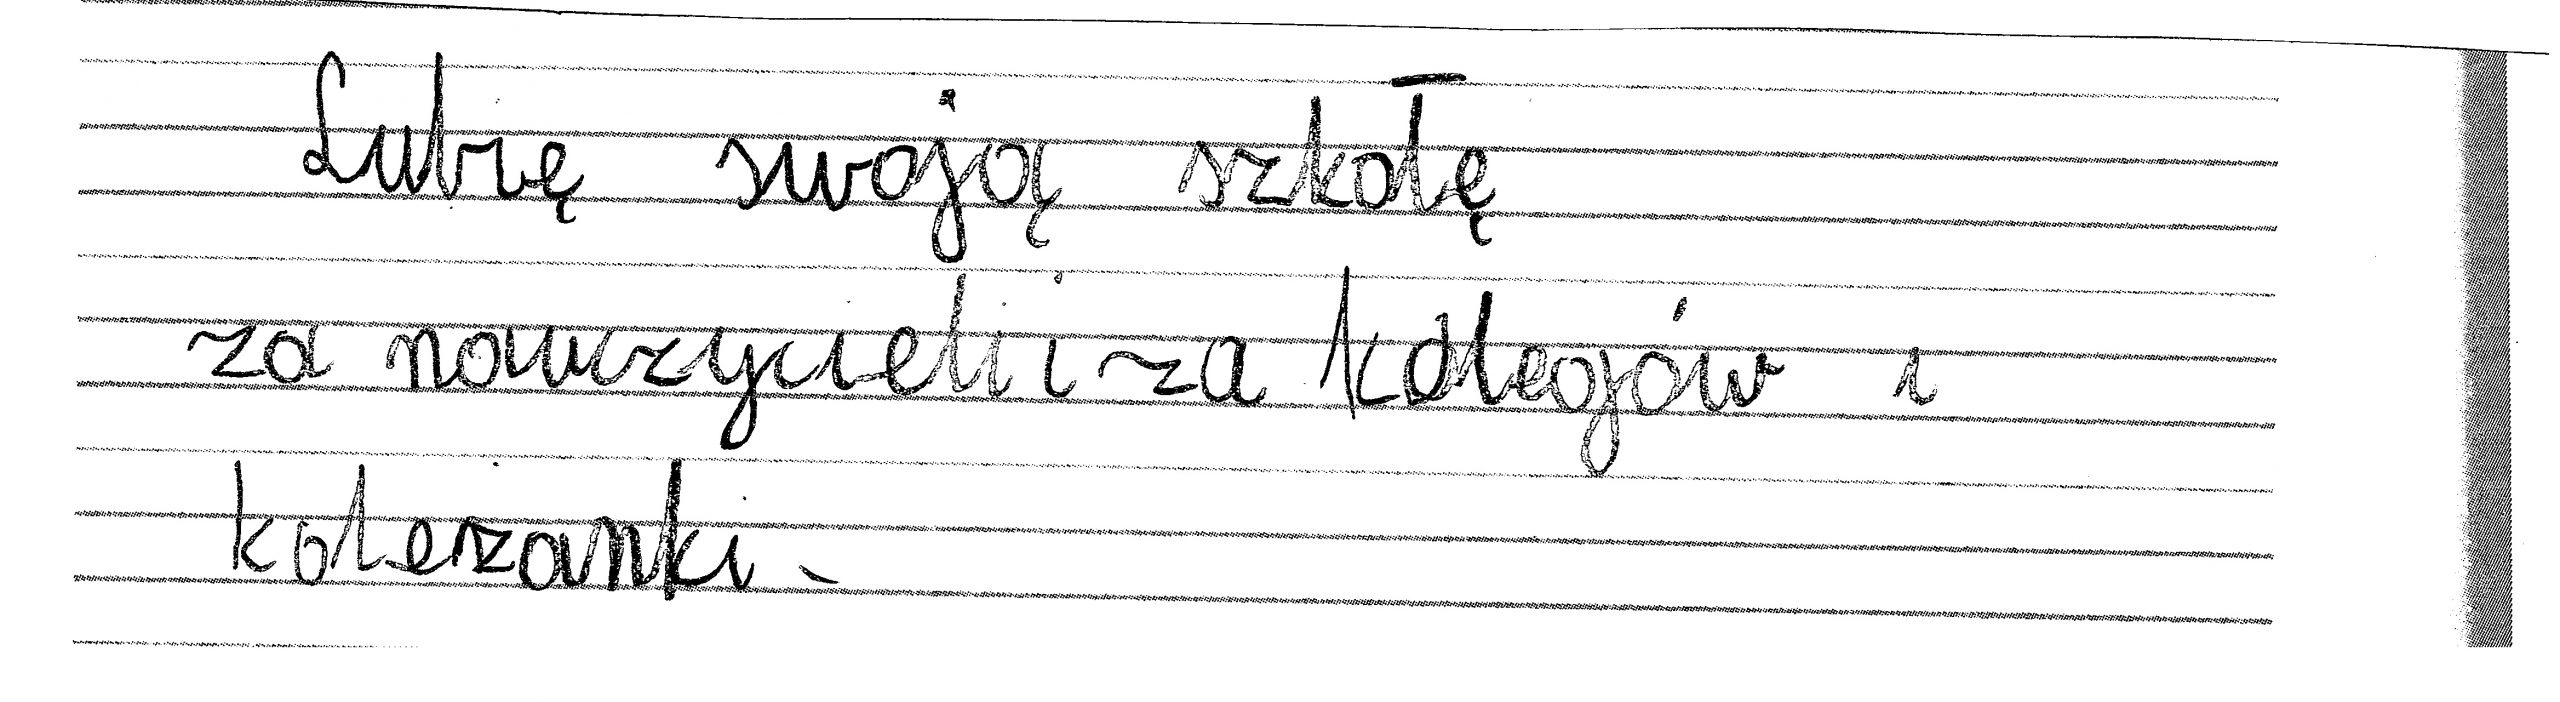 Lubię swoją szkołę
za nauczycieli i za kolegów i
koleżanki.